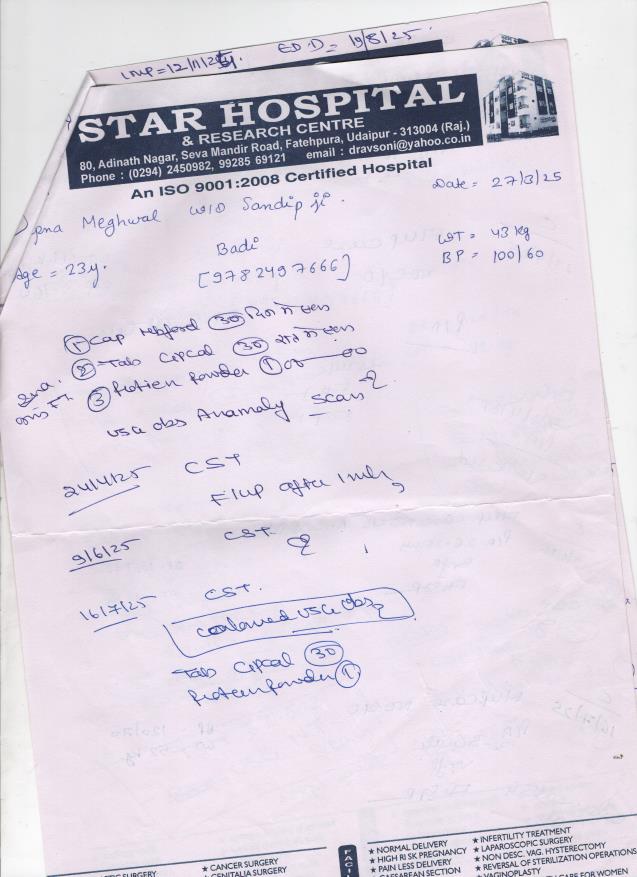 LMP = 12/11/24 EDD = 19/8/25
STAR HOSPITAL
& RESEARCH CENTRE
80, Adinath Nagar, Seva Mandir Road, Fatehpura, Udaipur - 313004 (Raj.)
Phone : (0294) 2450982, 99285 69121 email : dravsoni@yahoo.co.in
An ISO 9001:2008 Certified Hospital
Date = 27/3/25
Meghwal W/O Sandip ji.
Badi
WT = 43 kg
Age = 23y.
[9782497666]
BP = 100/60
① Cap 30
② Tab Cipcal 30
③ Protien Powder ①
USG obs Anamaly scan
24/4/25 CST
F/up after 1 mth
9/6/25 CST
16/7/25 CST.
USG obs
Tab Cipcal 30
Protien Powder ①
FACI
★ CANCER SURGERY
GENITALIA SURGERY
★ NORMAL DELIVERY
★ HIGH RISK PREGNANCY
★ PAIN LESS DELIVERY
CAESAREAN SECTION
★ INFERTILITY TREATMENT
★ LAPAROSCOPIC SURGERY
★ NON DESC. VAG. HYSTERECTOMY
★ REVERSAL OF STERILIZATION OPERATIONS
★ VAGINOPLASTY
CARE FOR WOMEN